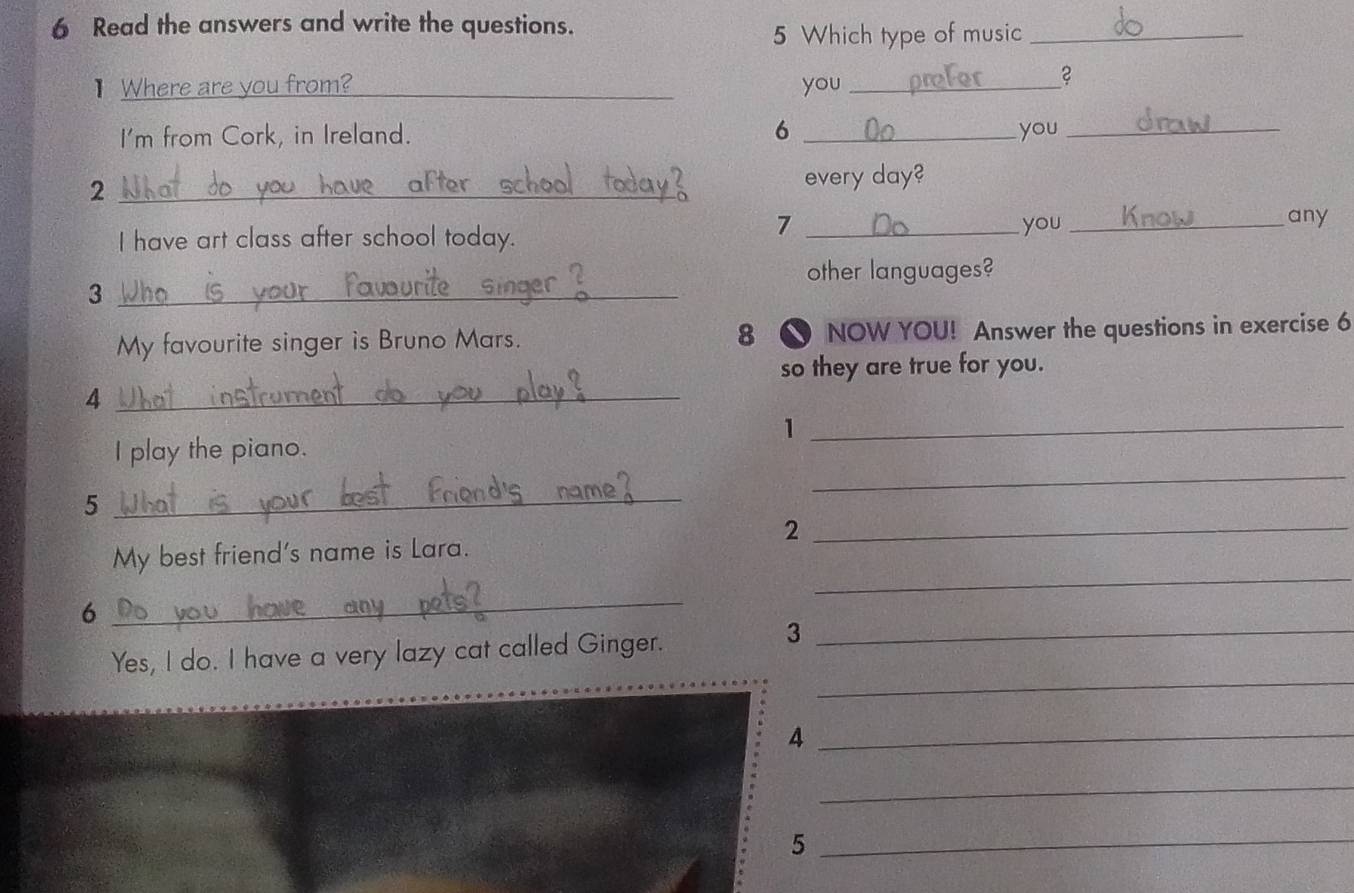 6 Read the answers and write the questions.
1 Where are you from?
I'm from Cork, in Ireland.
2 What do you have after school today?
I have art class after school today.
3 Who is your favourite singer?
My favourite singer is Bruno Mars.
4 What instrument do you play?
I play the piano.
5 What is your best friend's name?
My best friend's name is Lara.
6 Do you have any pets?
Yes, I do. I have a very lazy cat called Ginger.
5 Which type of music do
you prefer ?
6 Do you draw
every day?
7 Do you know any
other languages?
8 NOW YOU! Answer the questions in exercise 6
so they are true for you.
1
2
3
4
5